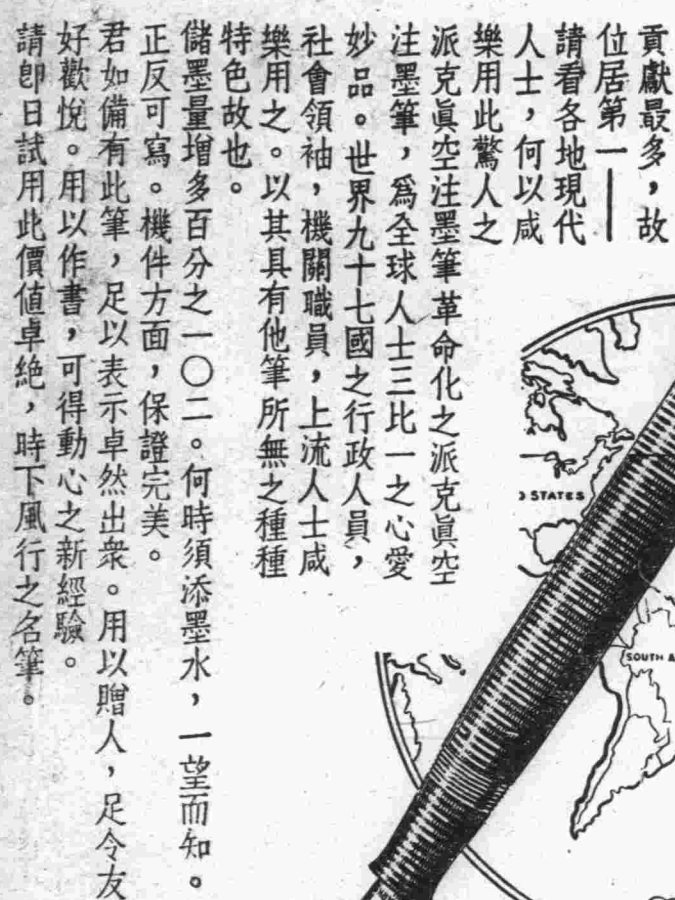 貢獻最多，故
位居第一——
請看各地現代
人士，何以咸
樂用此驚人之
派克眞空注墨筆革命化之派克眞空
注墨筆，爲全球人士三比一之心愛
妙品。世界九十七國之行政人員，
社會領袖，機關職員，上流人士咸
樂用之。以其具有他筆所無之種種
特色故也。
儲墨量增多百分之一〇二。何時須添墨水，一望而知。
正反可寫。機件方面，保證完美。
君如備有此筆，足以表示卓然出衆。用以贈人，足令友
好歡悅。用以作書，可得動心之新經驗。
請卽日試用此價値卓絶，時下風行之名筆。
STATES
SOUTH A